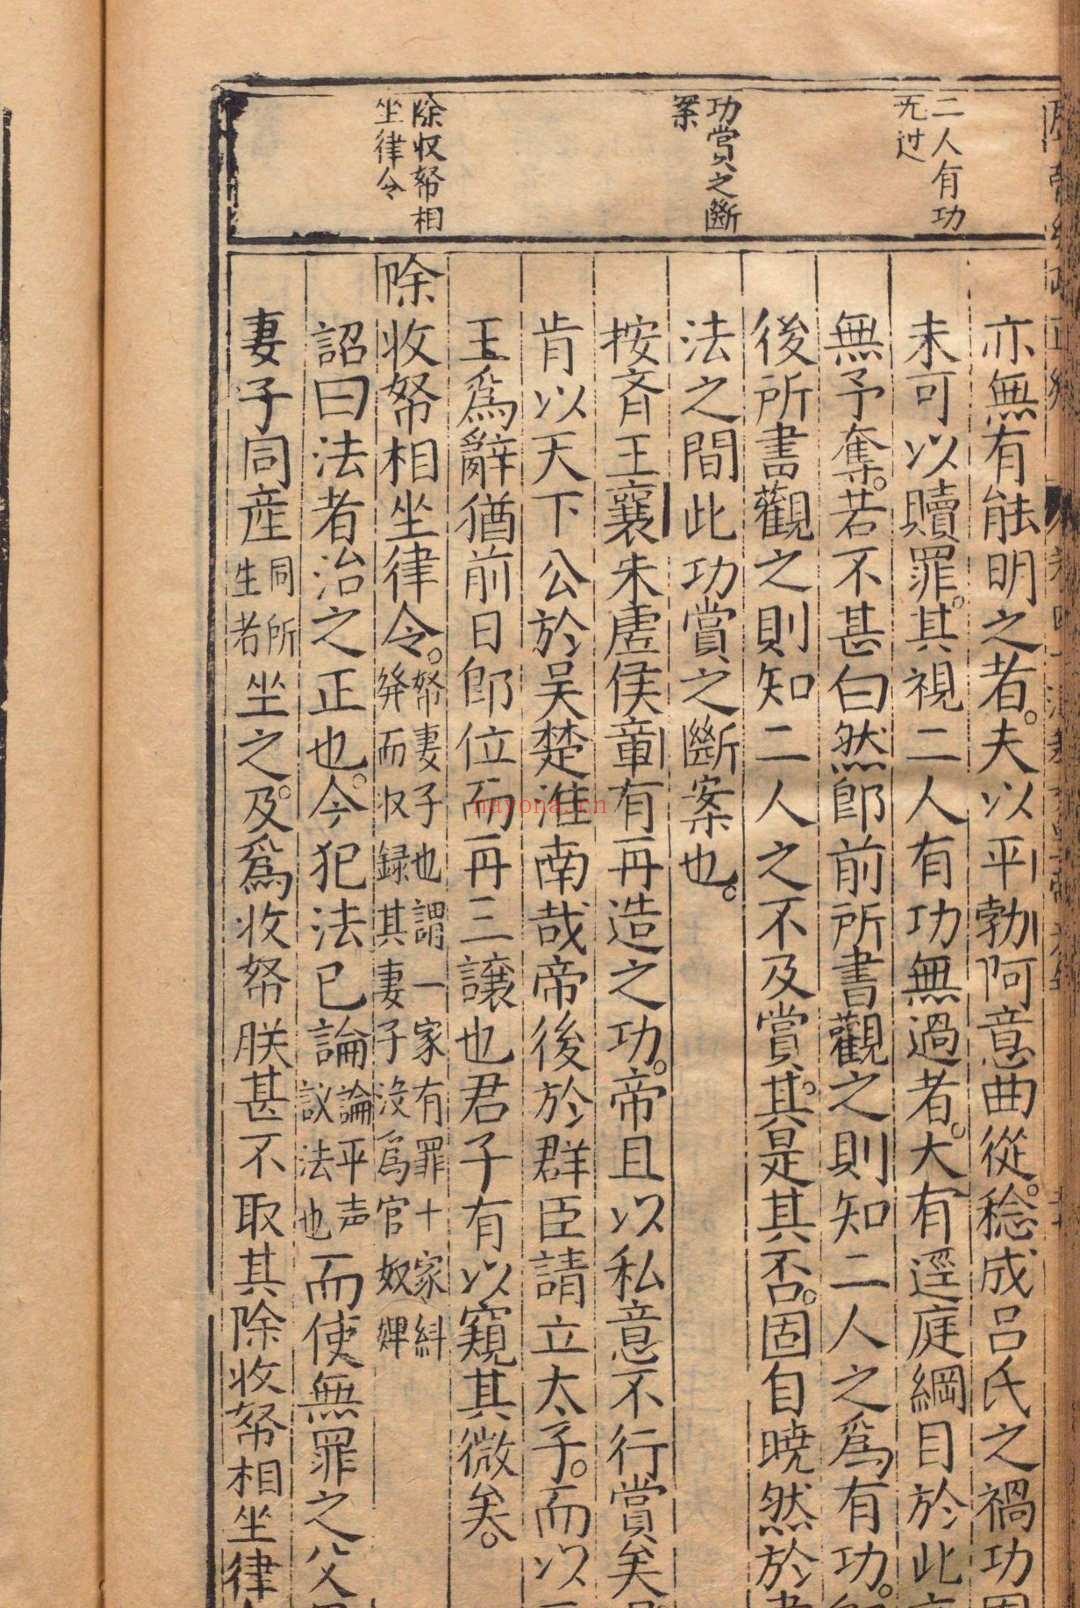 二人有功
无过
功賞之斷
案
除収帑相
坐律令
亦無有能明之者夫以平勃阿意曲從稔成呂氏之禍功
未可以贖罪其視二人有功無過者大有逕庭綱目於此
無予奪若不甚白然即前所書觀之則知二人之為有功
後所書觀之則知二人之不及賞其是其否固自曉然於
法之間此功賞之斷案也
按斉王襄朱虗侯章有再造之功帝且以私意不行賞矣
肯以天下公於吴楚淮南哉帝後於群臣請立太子而以
王爲辭猶前日即位而再三讓也君子有以窺其微矣
除收帑相坐律令帑妻子也謂一家有罪十家糾
發而収録其妻子没爲官奴婢
詔曰法者治之正也今犯法已論論平声
議法也而使無罪之父
妻子同産同所
生者坐之及爲收帑朕甚不取其除收帑相坐律
nayona.cn